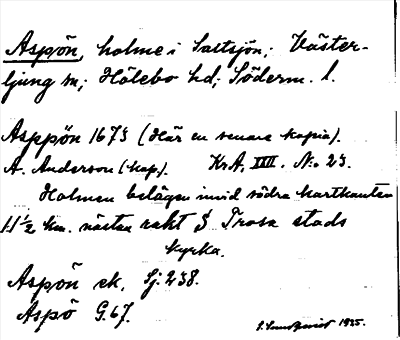 Aspön, holme i Saltsjön; Väster-
ljung sn; Hölebo hd; Söderm. l.
Asppön 1673 (Här en senare kopia).
A. Anderson (kop.). KrA, XIII. No. 23.
Holmen belägen invid södra kartkanten
11½ km. nästan rakt S Trosa stads
kyrka.
Aspön ek. Sj. 238.
Aspö G. 67.
S. Sundqvist 1935.